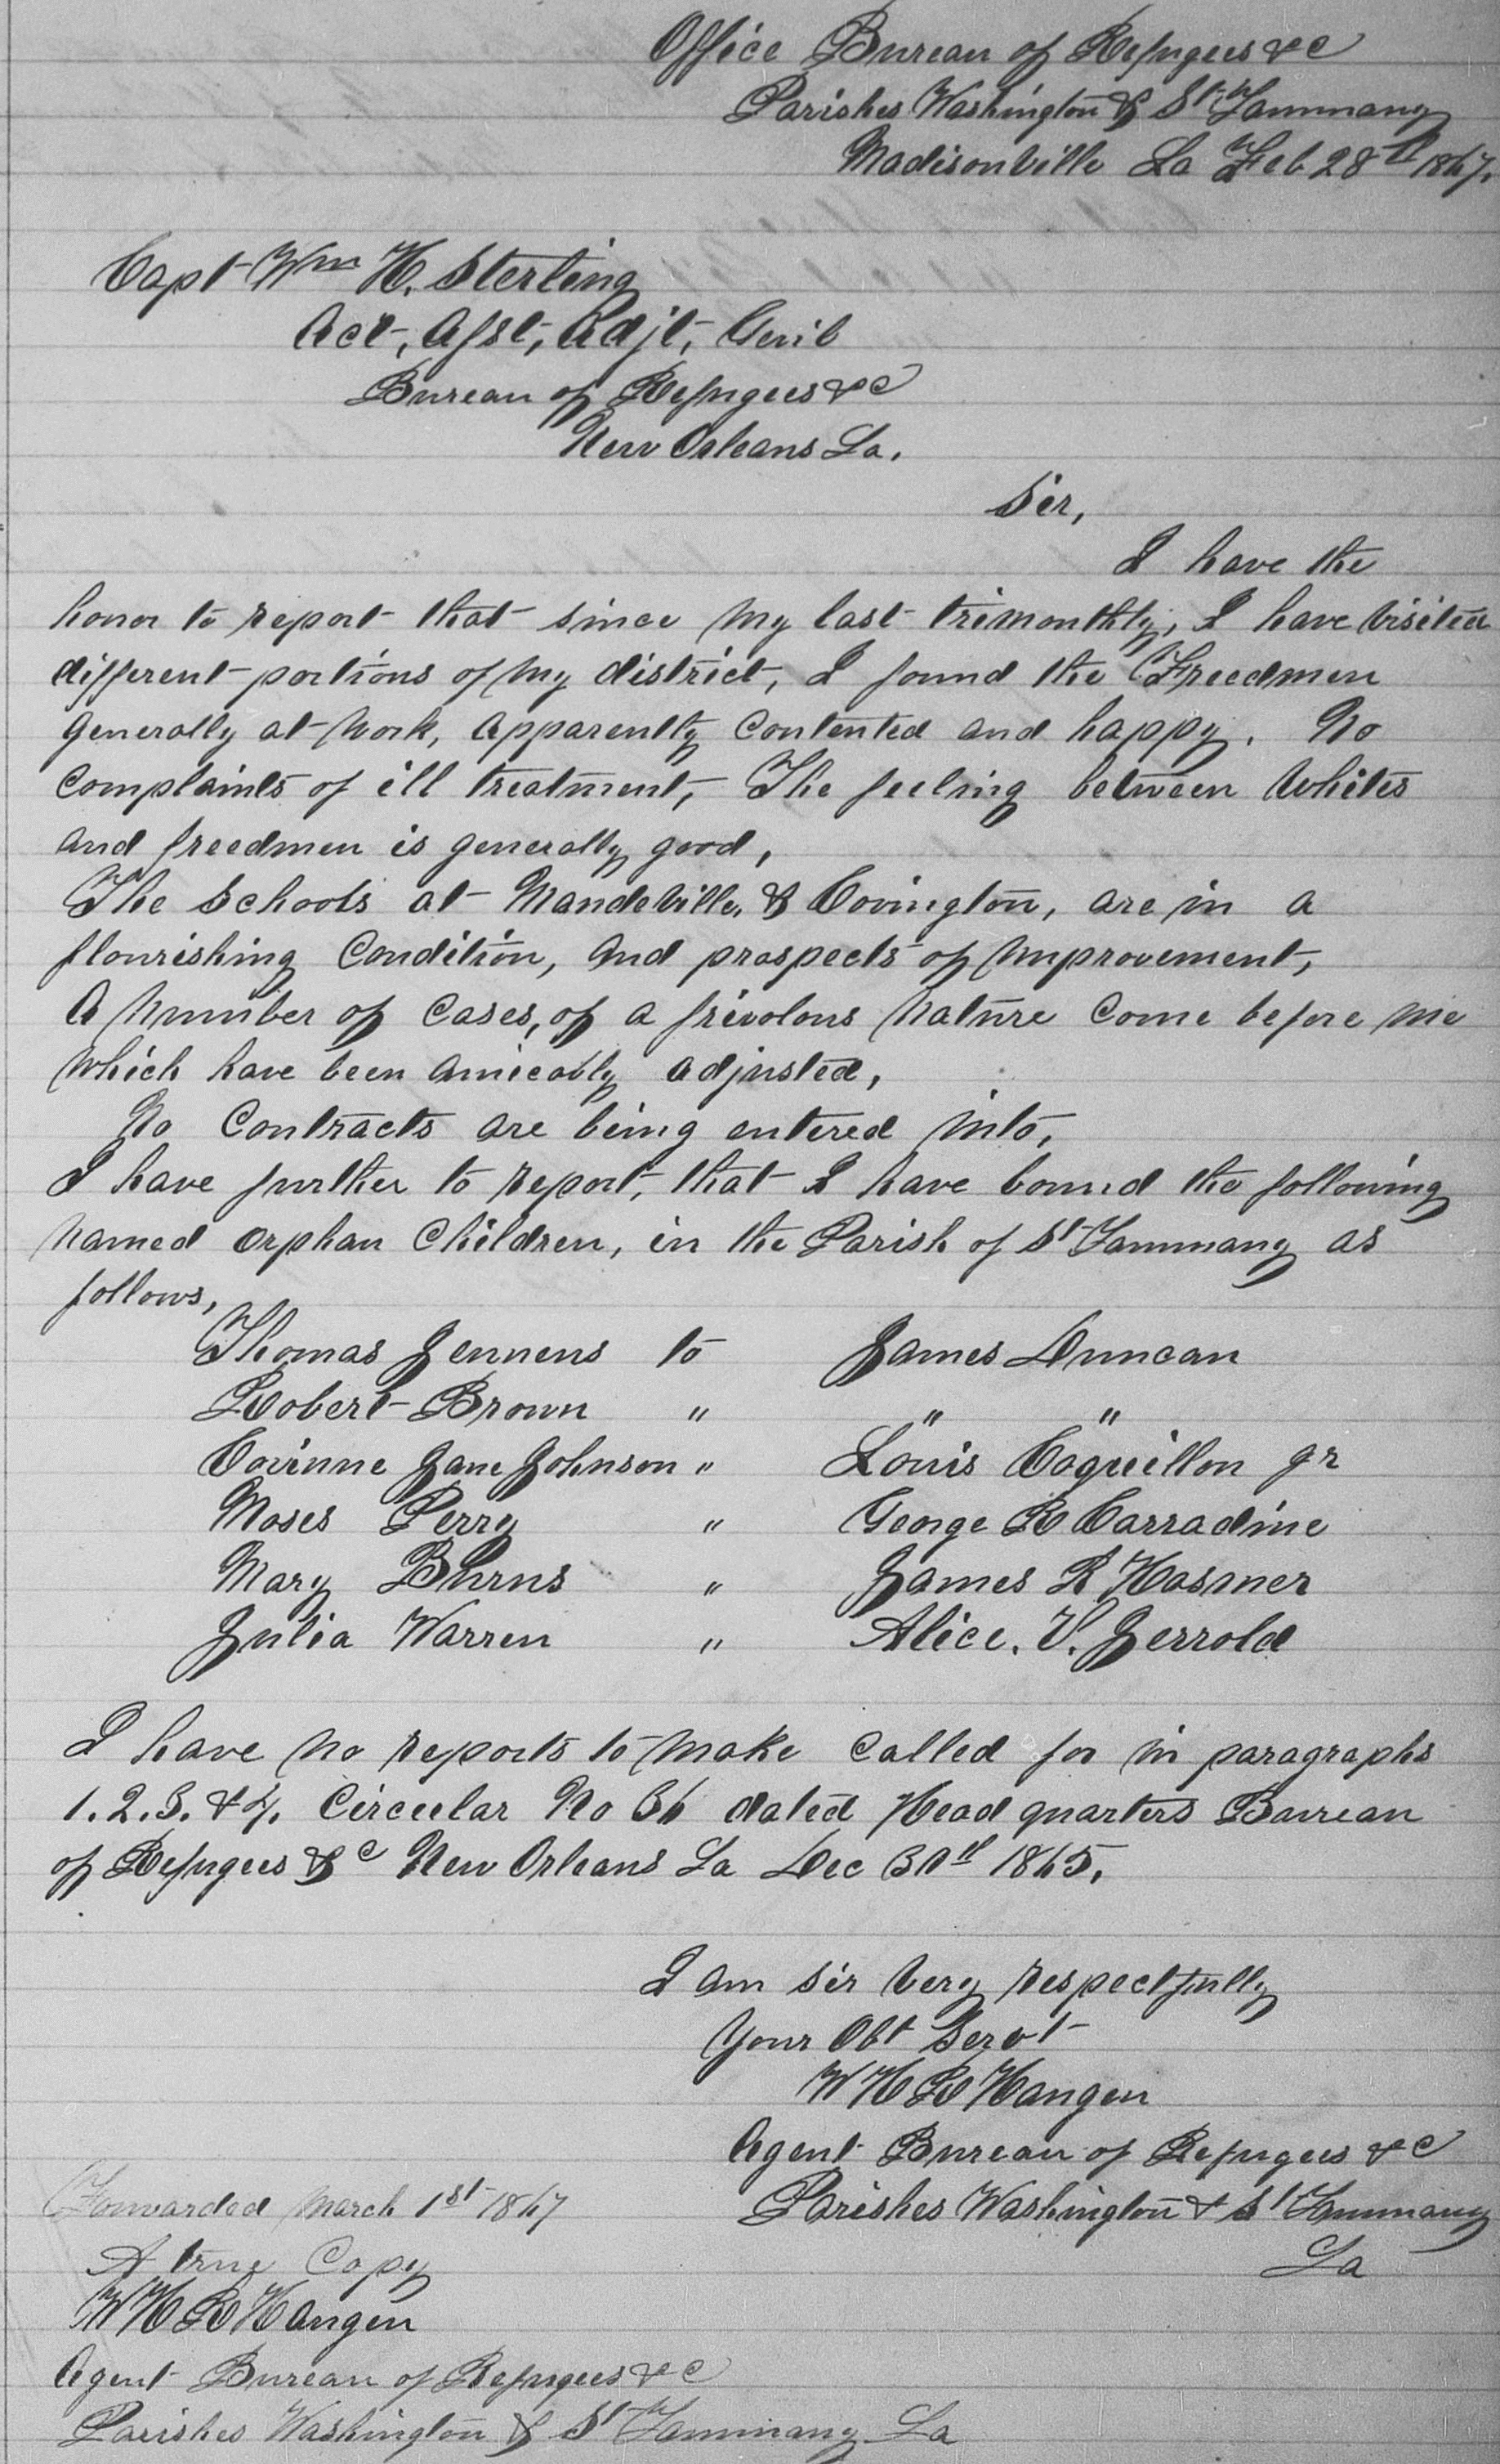 Office Bureau of Refugees &c
Parishes Washington & St Tammany
Madisonville La Feb 28th 1867.
Capt Wm H. Sterling
Act, Asst, Adjt, Genl
Bureau of Refugees &c
New Orleans La.
Sir,
I have the
honor to report that since my last trimonthly, I have visited
different portions of my district, I found the Freedmen
generally at work, apparently contented and happy. No
complaints of ill treatment, The feeling between Whites
and freedmen is generally good,
The Schools at Mandeville, & Covington, are in a
flourishing Condition, and prospects of improvement,
A number of Cases, of a frivolous nature come before me
which have been amicably adjusted,
No Contracts are being entered into,
I have further to report, that I have bound the following
named orphan Children, in the Parish of St Tammany as
follows,
Thomas Jennens to James Duncan
Robert Brown " " "
Corinne Jane Johnson " Louis Coquillon Jr
Moses Perry " George R Carradine
Mary Burns " James R Hosmer
Julia Warren " Alice. V. Jerrold
I have no reports to make called for in paragraphs
1. 2. 3. & 4. Circular No 36 dated Head quarters Bureau
of Refugees &c New Orleans La Dec 30th 1865.
I am sir very respectfully
Your Obt Servt
W H R Hangen
Agent Bureau of Refugees &c
Parishes Washington & St Tammany
La
Forwarded March 1st 1867
A true Copy
W H R Hangen
Agent Bureau of Refugees &c
Parishes Washington & St Tammany La